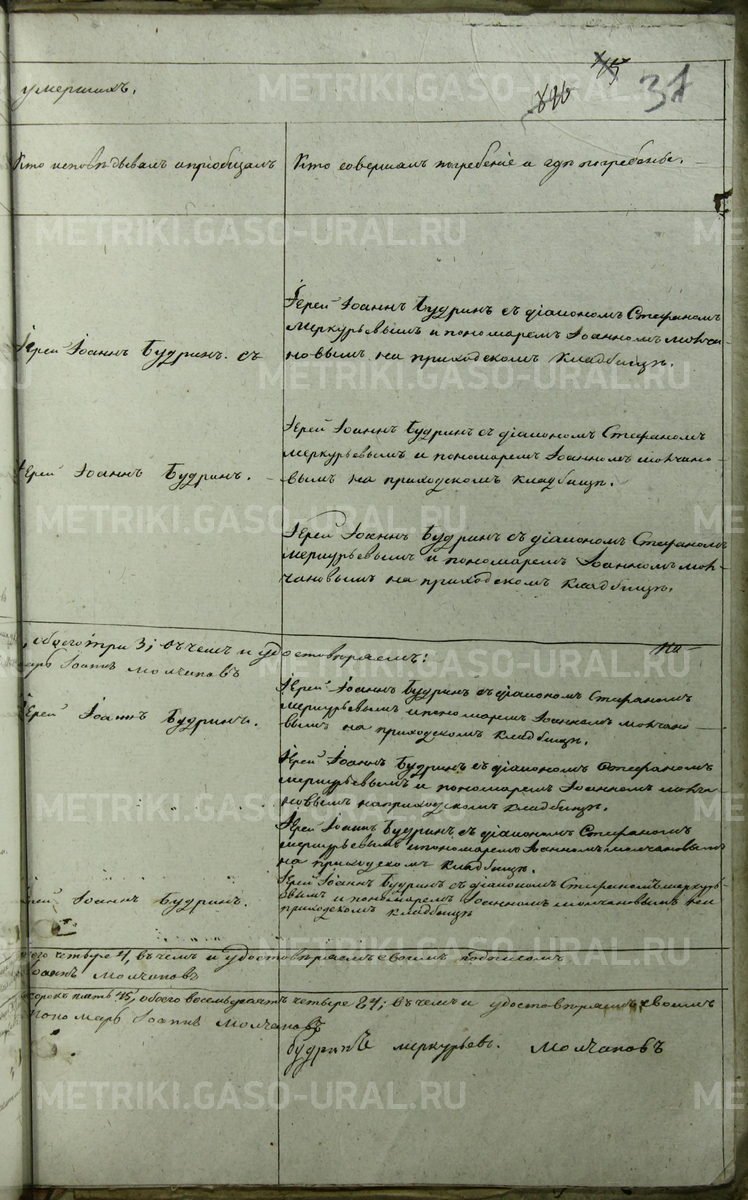 умершихъ.
37
Кто исповѣдывалъ и пріобщалъ
Кто совершалъ погребеніе и гдѣ погребены.
Іерей Іоаннъ Будринъ съ діакономъ Стефаномъ
Меркурьевымъ и пономаремъ Іоанномъ Молча-
новымъ на приходскомъ кладбищѣ.
Іерей Іоаннъ Будринъ. съ
Іерей Іоаннъ Будринъ съ діакономъ Стефаномъ
меркурьевымъ и пономаремъ Іоанномъ молчано-
вымъ на приходскомъ кладбищѣ.
Іерей Іоаннъ Будринъ.
Іерей Іоаннъ Будринъ съ діакономъ Стефаномъ
меркурьевымъ и пономаремъ Іоанномъ мол-
чановымъ на приходскомъ кладбищѣ.
обоего три 3; въ чемъ и удостовѣряемъ:
Іоаннъ Молчановъ
Іерей Іоаннъ Будринъ.
Іерей Іоаннъ Будринъ съ діакономъ Стефаномъ
меркурьевымъ и пономаремъ Іоанномъ молчано-
вымъ на приходскомъ кладбищѣ.
Іерей Іоаннъ Будринъ съ діакономъ Стефаномъ
меркурьевымъ и пономаремъ Іоанномъ молча-
новымъ на приходскомъ кладбищѣ.
Іерей Іоаннъ Будринъ съ діакономъ Стефаномъ
меркурьевымъ и пономаремъ Іоанномъ молчановымъ
на приходскомъ кладбищѣ.
Іерей Іоаннъ Будринъ.
Іерей Іоаннъ Будринъ съ діакономъ Стефаномъ меркурь-
евымъ и пономаремъ Іоанномъ молчановымъ на
приходскомъ кладбищѣ
четыре 4, въ чемъ и удостовѣряемъ своимъ подписомъ
Іоаннъ Молчановъ
сорокъ пять 45, обоего восемьдесятъ четыре 84; въ чемъ и удостовѣряемъ своимъ
Пономарь Іоаннъ Молчановъ
Будринъ меркурьевъ. Молчановъ
METRIKI.GASO-URAL.RU